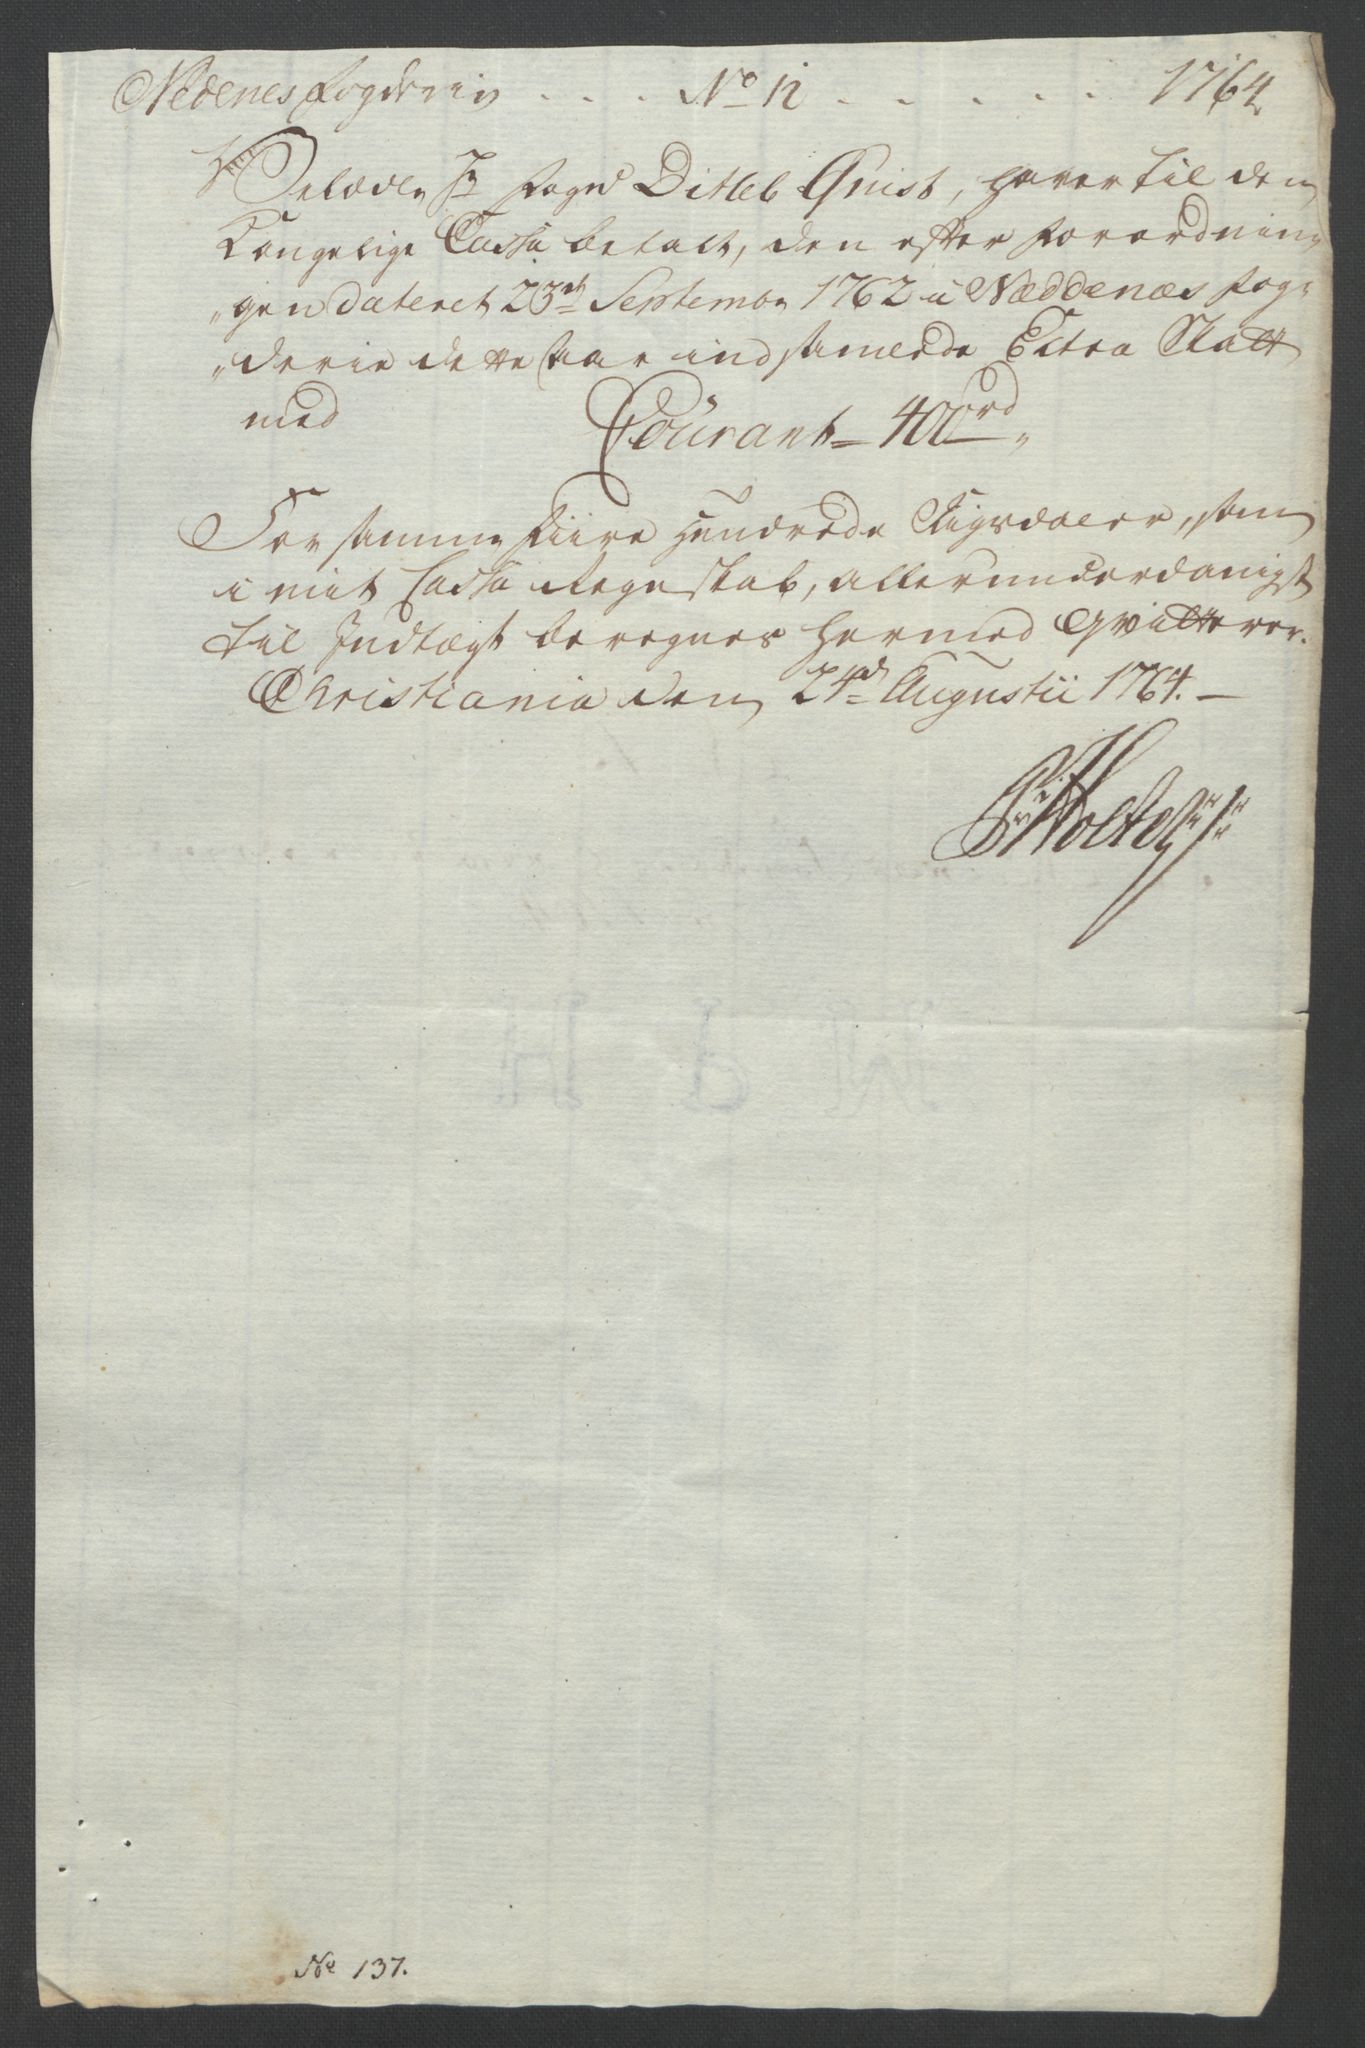 Nedenes Fogderie . . . No 12 . . . . . . 1764
Velædle Hr Foged Ditleb Qvist, haver til den
Kongelige Cassa betalt, den efter Forordnin„
„gen dateret 23de Septembr 1762 i Næddenæs Fog„
„derie dette aar indsamlede Extra Skatt
med Courant – 400 rd„
For samme Fiire Hundrede Rigsdaler, som
i mit Cassa Regnskab, allerunderdanigst
til Indtægt beregnes hermed qvitterer.
Christiania den 24de Augustii 1764. –
Holter
No 137.